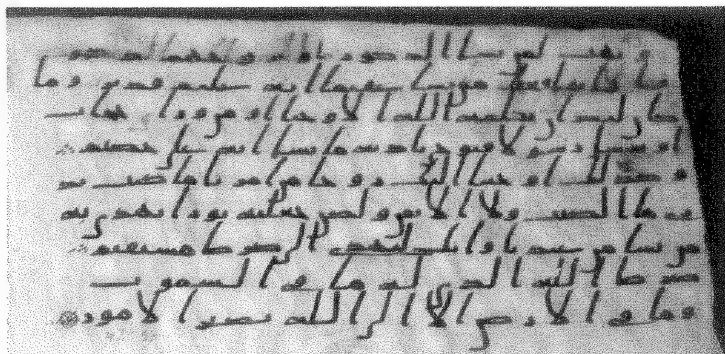 و يهب لمن يشا الذكور او يزوجهم ذكر
نا و انثا و يجعل من يشا عقيما انه عليم قدير و ما
كان لبشر ان يكلمه الله الا وحيا او من ورا حجاب
او يرسل رسولا فيوحى باذنه ما يشا انه على حكيم
و كذلك اوحينا اليك روحا من امرنا ما كنت تد
رى ما الكتب ولا الايمن ولكن جعلنه نورا نهدى به
من نشا من عبدنا و انك لتهدى الى صرط مستقيم
صرط الله الذى له ما فى السموت
و ما فى الارض الا الى الله تصير الامور